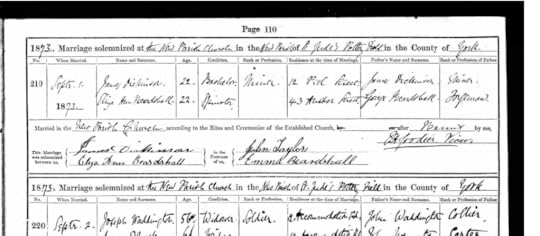 Page 110
1873. Marriage solemnized at the New Parish Church in the New Parish of St. Jude's Potter Hill in the County of York
No. When Married. Name and Surname. Age. Condition. Rank or Profession. Residence at the time of Marriage. Father's Name and Surname. Rank or Profession of Father.
219 Septr. 1. James Dickinson 22. Bachelor Miner 12 Street James Dickinson Miner
1873. Eliza Ann Beardshall 22. Spinster 43 Street George Beardshall Forgeman
Married in the New Parish Church according to the Rites and Ceremonies of the Established Church, or after Banns by me,
Goodier Vicar
This Marriage was solemnized between us, James Dickinson Eliza Ann Beardshall in the Presence of us, John Taylor Emma Beardshall
1873. Marriage solemnized at the New Parish Church in the New Parish of St. Jude's Potter Hill in the County of York
No. When Married. Name and Surname. Age. Condition. Rank or Profession. Residence at the time of Marriage. Father's Name and Surname. Rank or Profession of Father.
220 Septr. 2. Joseph Waddington Widower Soldier John Waddington Collier